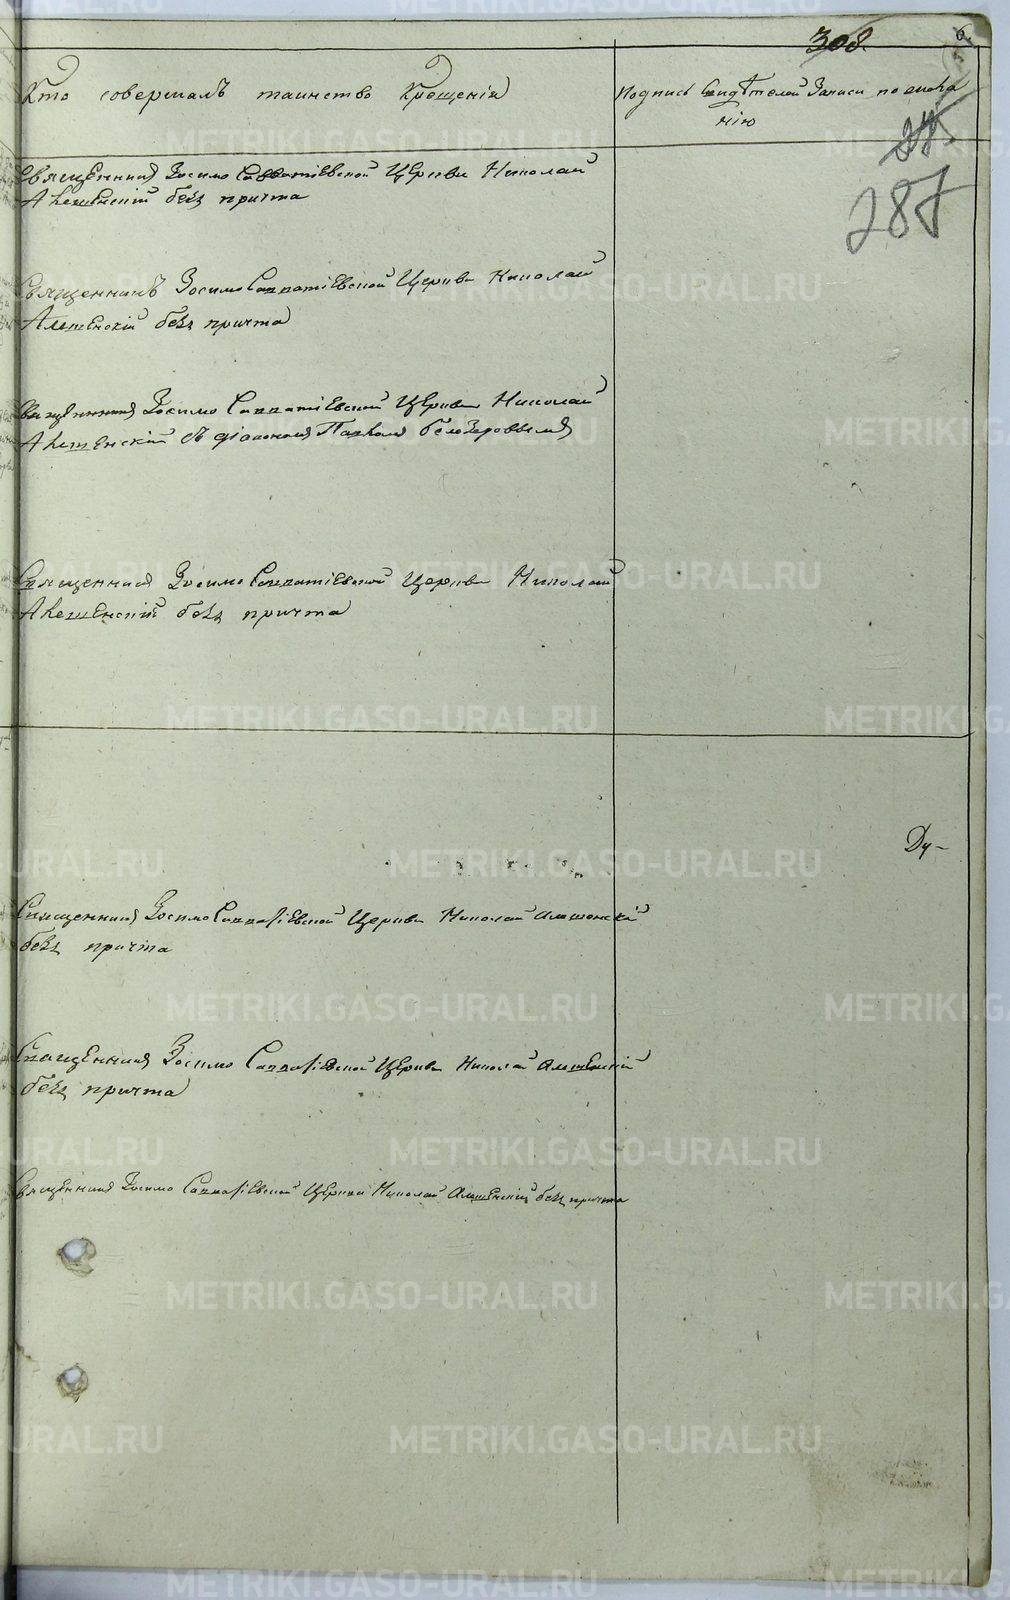 308.
6.
Кто совершалъ таинство Крещенія
Подпись Свидѣтелей Записи по жела
нію
28.
287
Священникъ Зосимо Савватіевской Церкви Николай
Алешенскій безъ причта
Священникъ Зосимо Савватіевской Церкви Николай
Алешенскій безъ причта
Священникъ Зосимо Савватіевской Церкви Николай
Алешенскій съ діакономъ Павломъ Белозеровымъ
Священникъ Зосимо Савватіевской Церкви Николай
Алешенскій безъ причта
Ду-
Священникъ Зосимо Савватіевской Церкви Николай Алешенскій
безъ причта
Священникъ Зосимо Савватіевской Церкви Николай Алешенскій
безъ причта
Священникъ Зосимо Савватіевской Церкви Николай Алешенскій безъ причта
METRIKI.GASO-URAL.RU